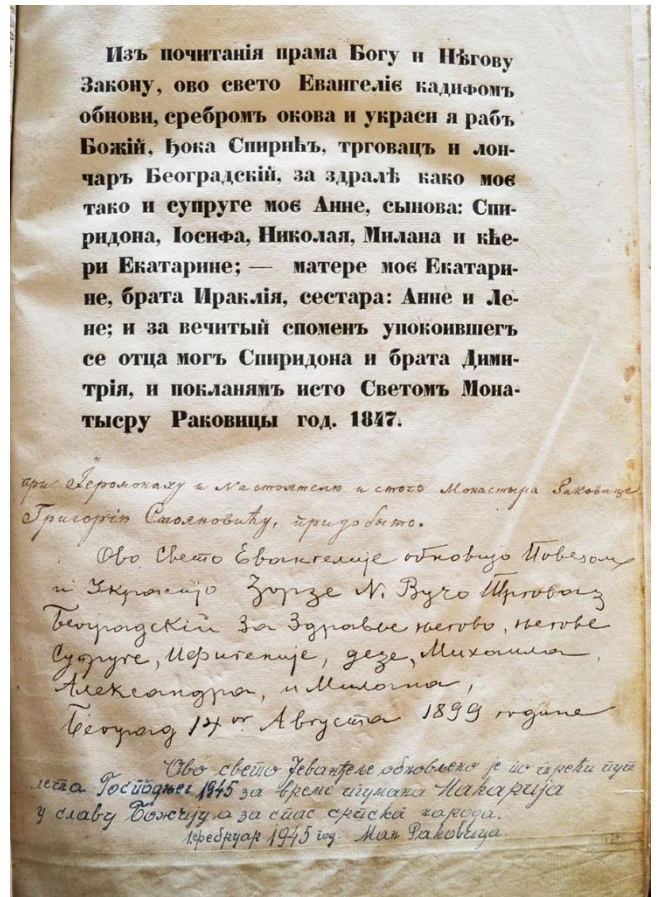 Изъ почитанія прама Богу и Нѣгову
Закону, ово свето Евангеліє кадифомъ
обнови, сребромъ окова и украси я рабъ
Божій, Ђока Спирићъ, трговацъ и лон-
чаръ Београдскій, за здралѣ како моє
тако и супруге моє Анне, сынова: Спи-
ридона, Іосифа, Николая, Милана и кће-
ри Екатарине; — матере моє Екатари-
не, брата Ираклія, сестара: Анне и Ле-
не; и за вечитый споменъ упокоившегъ
се отца могъ Спиридона и брата Дими-
трія, и покланямъ исто Светомъ Мона-
тысру Раковицы год. 1847.
при Јеромонаху и Настоятелю и стого Монастыра Раковице
Григорію Стояновићу, придобыто.
Ово Свето Евангелије обновијо Повезом
и Украсијо Ђорђе Н. Вучо Трговац
Београдскій За Здравље његово, његове
Супруге, Ифигеније, деце, Михаила,
Александра, и Милана,
Београд 14 ог Августа 1899 године
Ово свето Јеванђеље обновљено је по трећи пут
лета Господњег 1945 за време игумана Макарија
у славу Божју а за спас српска народа.
1. фебруар 1945 год. Ман. Раковица.